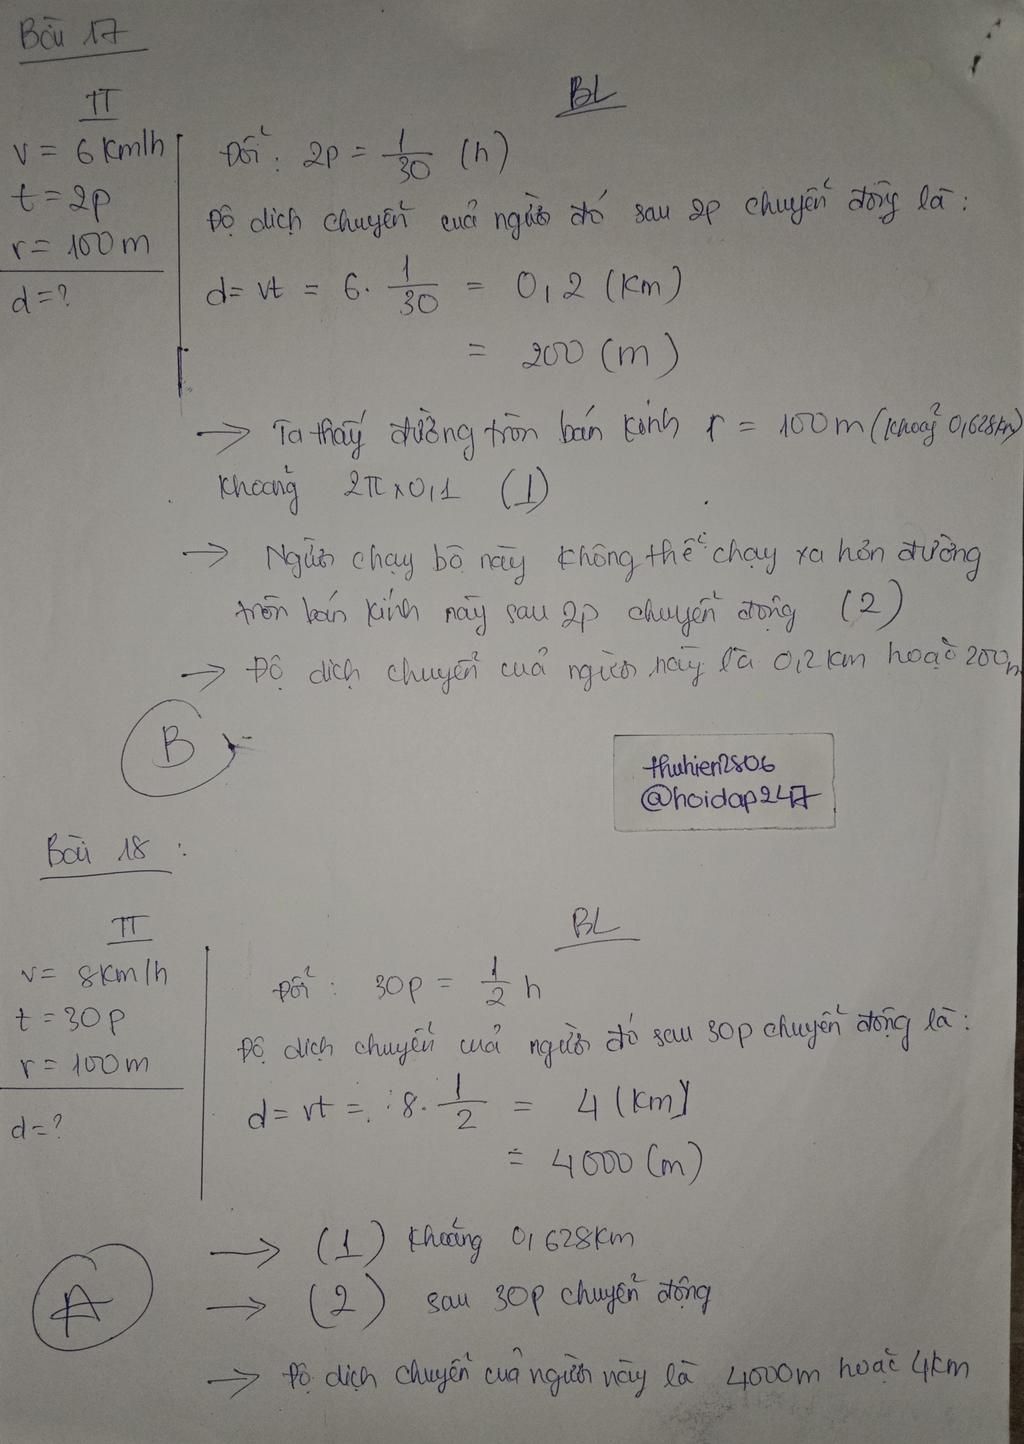 Bài 17
TT
BL
v = 6 km/h
t = 2p
r = 100 m
d = ?
Đổi : 2p = 1/30 (h)
Độ dịch chuyển cuả người đó sau 2p chuyển động là :
d = vt = 6. 1/30 = 0,2 (km)
= 200 (m)
→ Ta thấy đường tròn bán kính r = 100 m (khoảng 0,628km)
khoảng 2π × 0,1 (1)
→ Người chạy bộ này không thể chạy xa hơn đường
tròn bán kính này sau 2p chuyển động (2)
→ Độ dịch chuyển cuả người này là 0,2 km hoặc 200m
B
thuhien2806
@hoidap247
Bài 18 :
TT
BL
v = 8km/h
t = 30p
r = 100m
d = ?
Đổi : 30p = 1/2 h
Độ dịch chuyển cuả người đó sau 30p chuyển động là :
d = vt = 8. 1/2 = 4 (km)
= 4000 (m)
→ (1) khoảng 0,628km
→ (2) sau 30p chuyển động
A
→ Độ dịch chuyển cuả người này là 4000m hoặc 4km